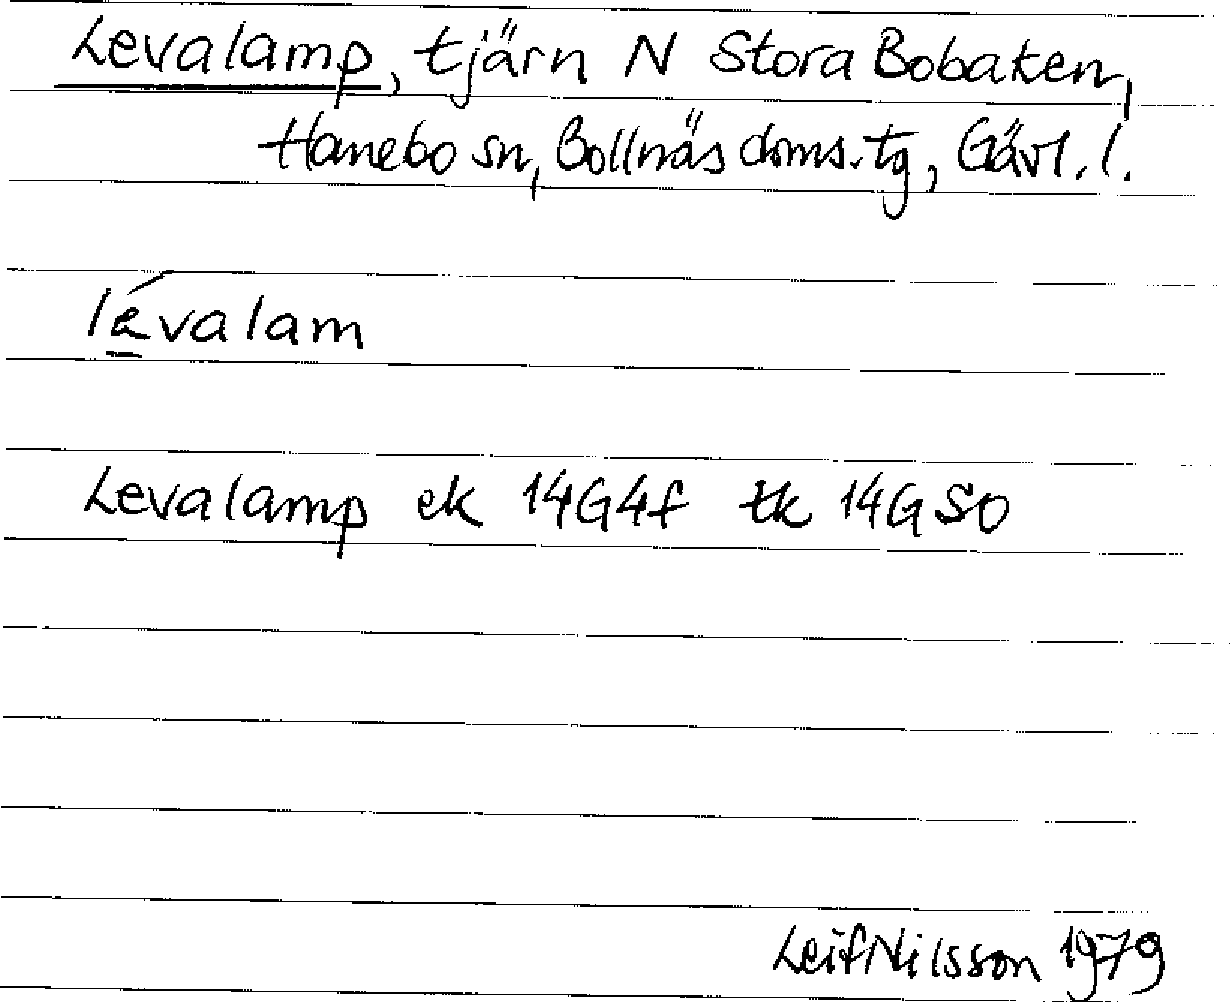 Levalamp, tjärn N Stora Bobaten,
Hanebo sn, Bollnäs doms.tg, Gävl.l.
lévalam
Levalamp ek 14G4f tk 14G SO
Leif Nilsson 1979